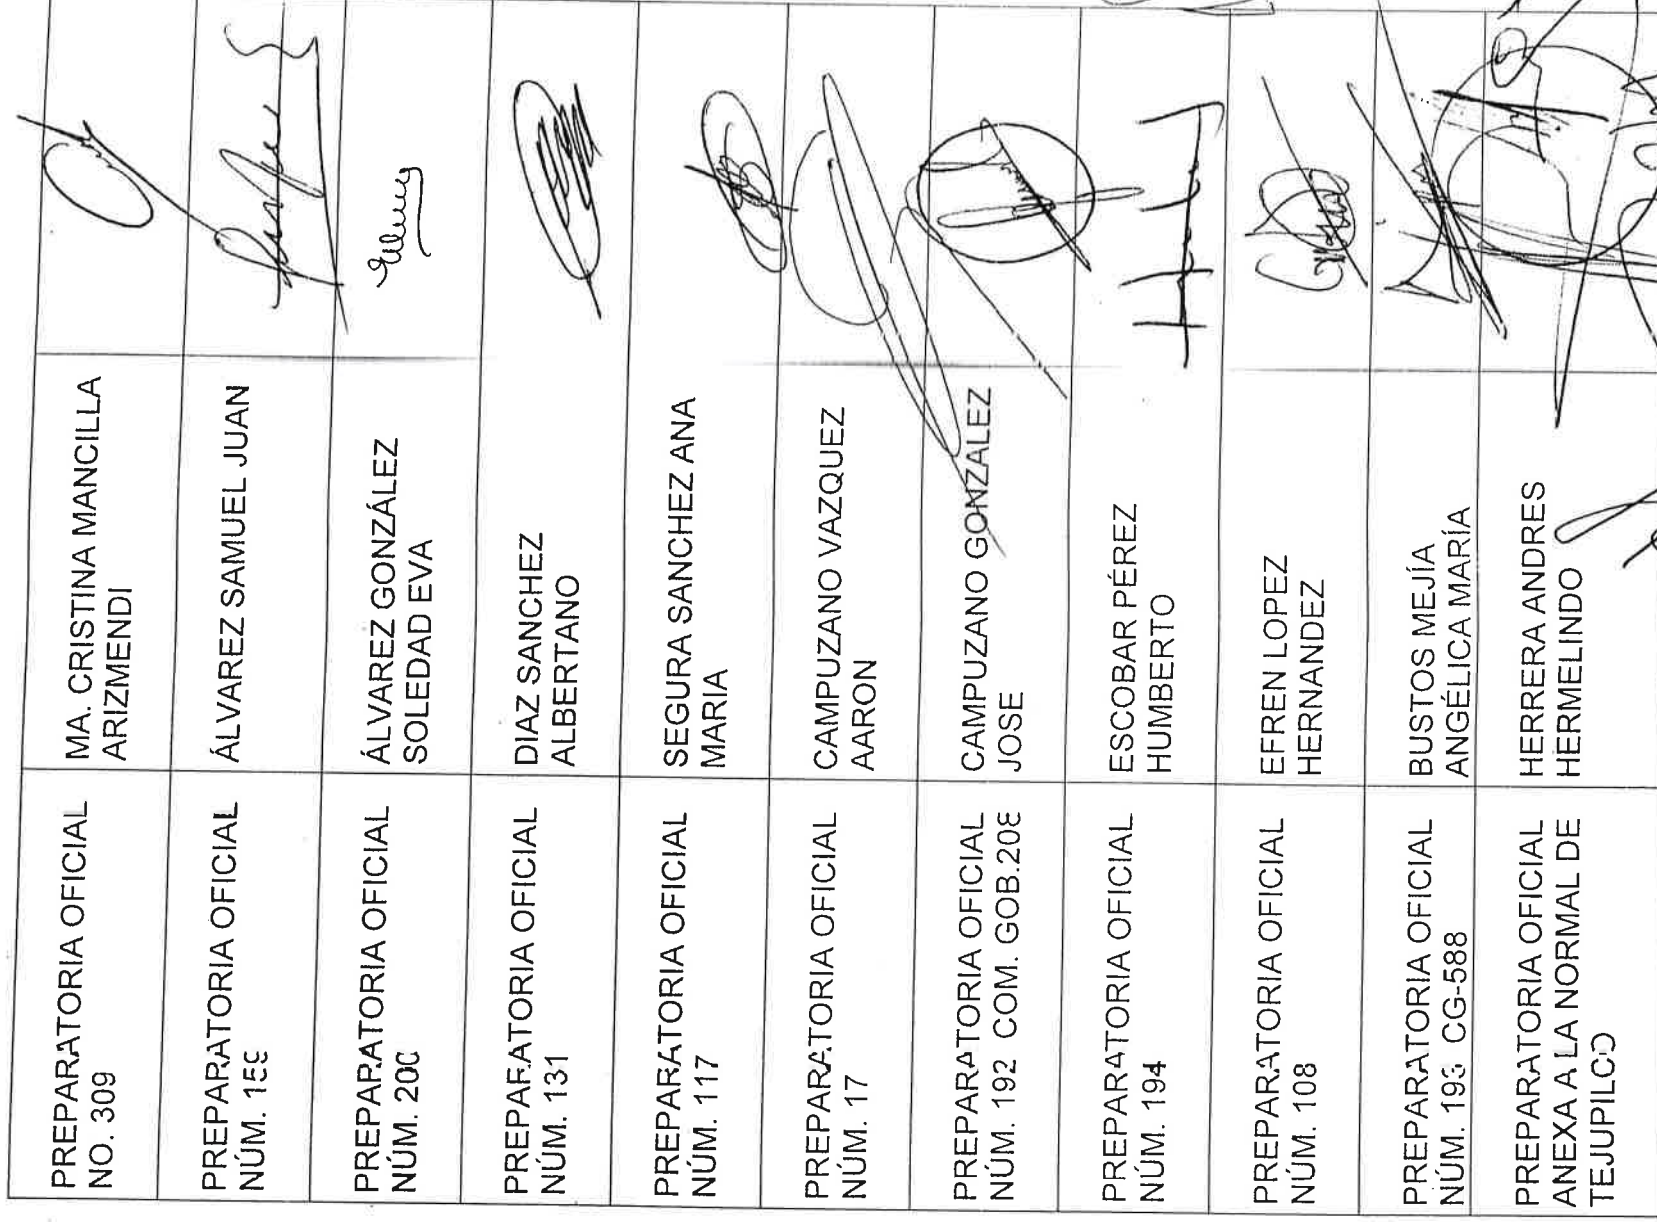 PREPARATORIA OFICIAL
NO. 309
MA. CRISTINA MANCILLA
ARIZMENDI
PREPARATORIA OFICIAL
NÚM. 159
ÁLVAREZ SAMUEL JUAN
PREPARATORIA OFICIAL
NÚM. 200
ÁLVAREZ GONZÁLEZ
SOLEDAD EVA
PREPARATORIA OFICIAL
NÚM. 131
DIAZ SANCHEZ
ALBERTANO
PREPARATORIA OFICIAL
NÚM. 117
SEGURA SANCHEZ ANA
MARIA
PREPARATORIA OFICIAL
NÚM. 17
CAMPUZANO VAZQUEZ
AARON
PREPARATORIA OFICIAL
NÚM. 192 COM. GOB.208
CAMPUZANO GONZALEZ
JOSE
PREPARATORIA OFICIAL
NÚM. 194
ESCOBAR PÉREZ
HUMBERTO
PREPARATORIA OFICIAL
NÚM. 108
EFREN LOPEZ
HERNANDEZ
PREPARATORIA OFICIAL
NÚM. 193 CG-588
BUSTOS MEJÍA
ANGÉLICA MARÍA
PREPARATORIA OFICIAL
ANEXA A LA NORMAL DE
TEJUPILCO
HERRERA ANDRES
HERMELINDO